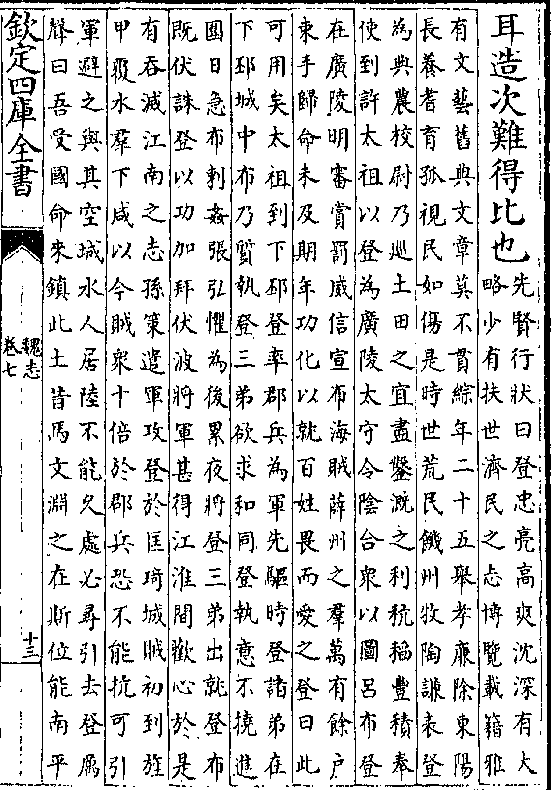 耳造次難得比也
先賢行狀曰登忠亮高爽沈深有大
略少有扶世濟民之志博覽載籍雅
有文藝舊典文章莫不貫綜年二十五舉孝廉除東陽
長養耆育孤視民如傷是時世荒民饑州牧陶謙表登
為典農校尉乃巡土田之宜盡鑿溉之利秔稻豐積奉
使到許太祖以登為廣陵太守令陰合衆以圖呂布登
在廣陵明審賞罰威信宣布海賊薛州之羣萬有餘户
束手歸命未及期年功化以就百姓畏而愛之登曰此
可用矣太祖到下邳登率郡兵為軍先驅時登諸弟在
下邳城中布乃質執登三弟欲求和同登執意不撓進
圍日急布刺姦張弘懼為後累夜將登三弟出就登布
既伏誅登以功加拜伏波將軍甚得江淮間歡心於是
有吞滅江南之志孫策遣軍攻登於匡琦城賊初到旌
甲覆水羣下咸以今賊衆十倍於郡兵恐不能抗可引
軍避之與其空城水人居陸不能久處必尋引去登厲
聲曰吾受國命來鎮此土昔馬文淵之在斯位能南平
欽定四庫全書
魏志
卷七
十三